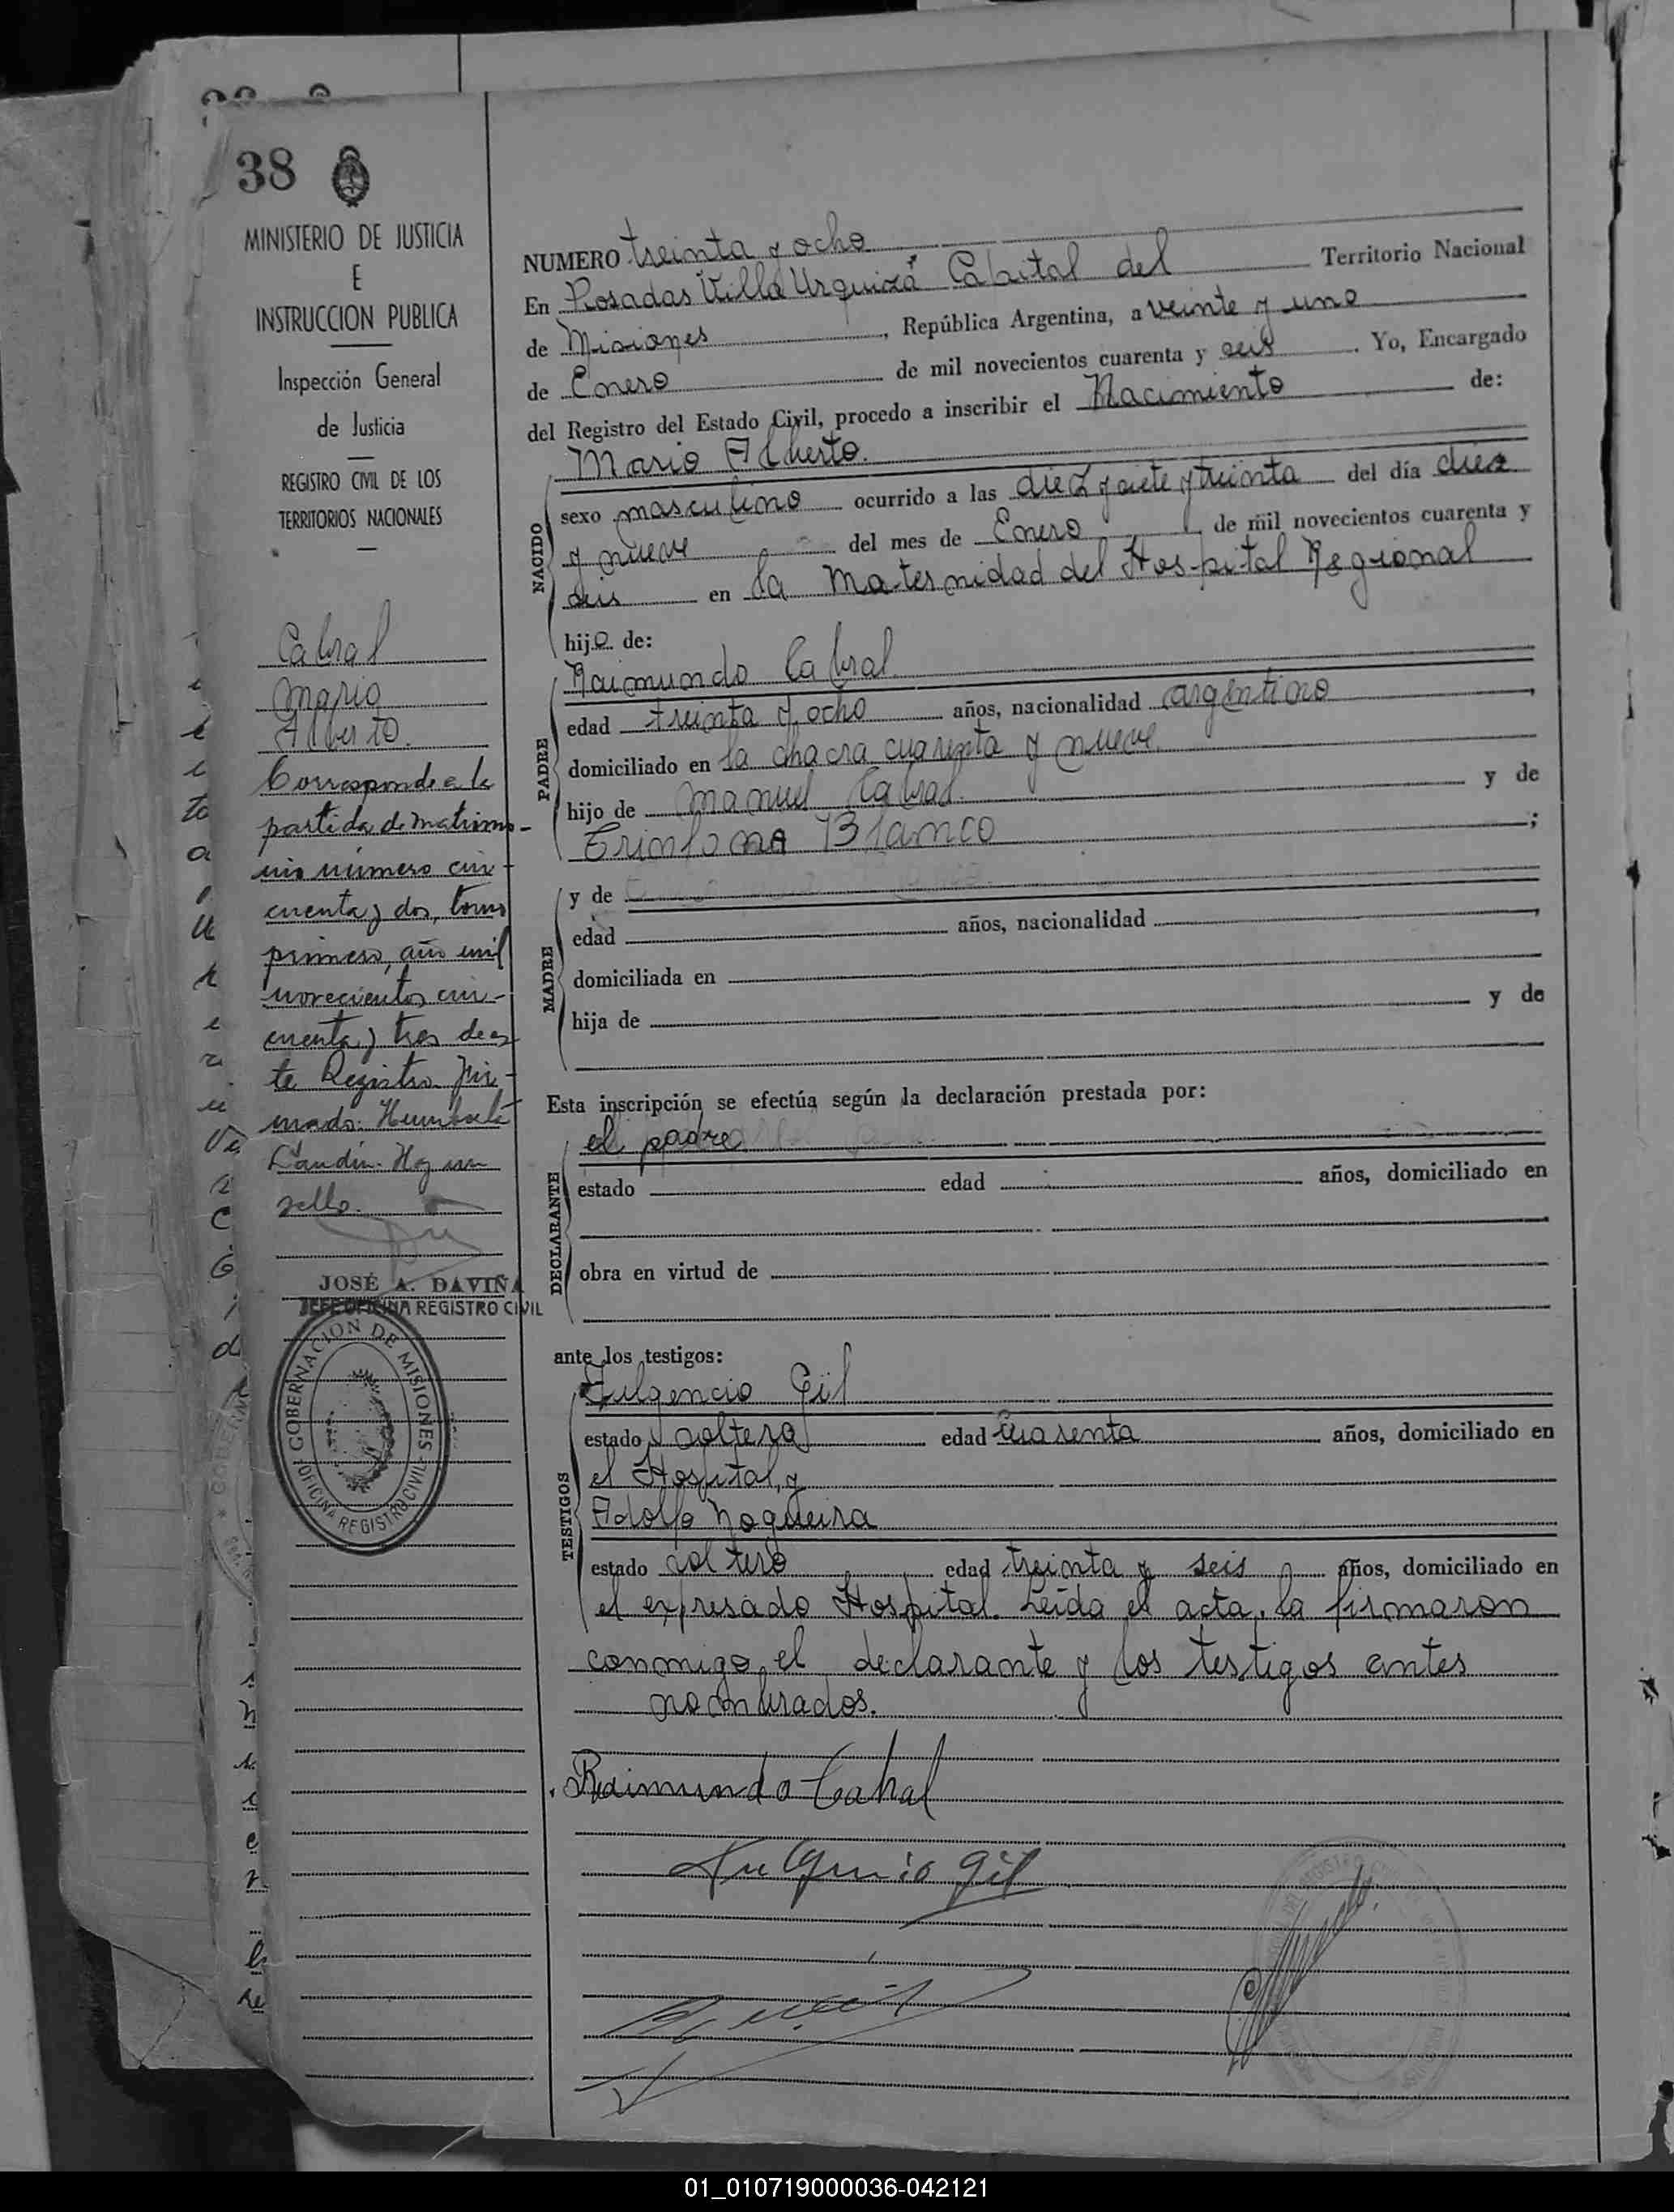 38
MINISTERIO DE JUSTICIA
E
INSTRUCCION PUBLICA
Inspección General
de Justicia
REGISTRO CIVIL DE LOS
TERRITORIOS NACIONALES
Cabral
Mario
Alberto.
Corresponde a la
partida de matrimo-
nio número cin-
cuenta y dos, tomo
primero, año mil
novecientos cin-
cuenta y tres de es-
te Registro. Fir-
mado: Humberto
Landin. Hay un
sello.
JOSÉ A. DAVIÑA
JEFE OFICINA REGISTRO CIVIL
GOBERNACION DE MISIONES
OFICINA REGISTRO CIVIL
NUMERO treinta y ocho
En Posadas "Villa Urquiza" Capital del Territorio Nacional
de Misiones, República Argentina, a veinte y uno
de Enero de mil novecientos cuarenta y seis. Yo, Encargado
del Registro del Estado Civil, procedo a inscribir el Nacimiento de:
NACIDO
Mario Alberto.
sexo masculino ocurrido a las diez y siete y treinta del día diez
y nueve del mes de Enero de mil novecientos cuarenta y
seis en la Maternidad del Hospital Regional
hijo de:
PADRE
Raimundo Cabral
edad treinta y ocho años, nacionalidad argentino,
domiciliado en la chacra cuarenta y nueve.
hijo de Manuel Cabral. y de
Blanco;
MADRE
y de
edad años, nacionalidad,
domiciliada en
hija de y de
Esta inscripción se efectúa según la declaración prestada por:
DECLARANTE
el padre
estado edad años, domiciliado en
obra en virtud de
ante los testigos:
TESTIGOS
Fulgencio Gil
estado soltero edad cuarenta años, domiciliado en
el Hospital, y
Adolfo Nogueira
estado soltero edad treinta y seis años, domiciliado en
el expresado Hospital. Leída el acta, la firmaron
conmigo el declarante y los testigos antes
nombrados.
Raimundo Cabral
Fulgencio Gil
01_010719000036-042121